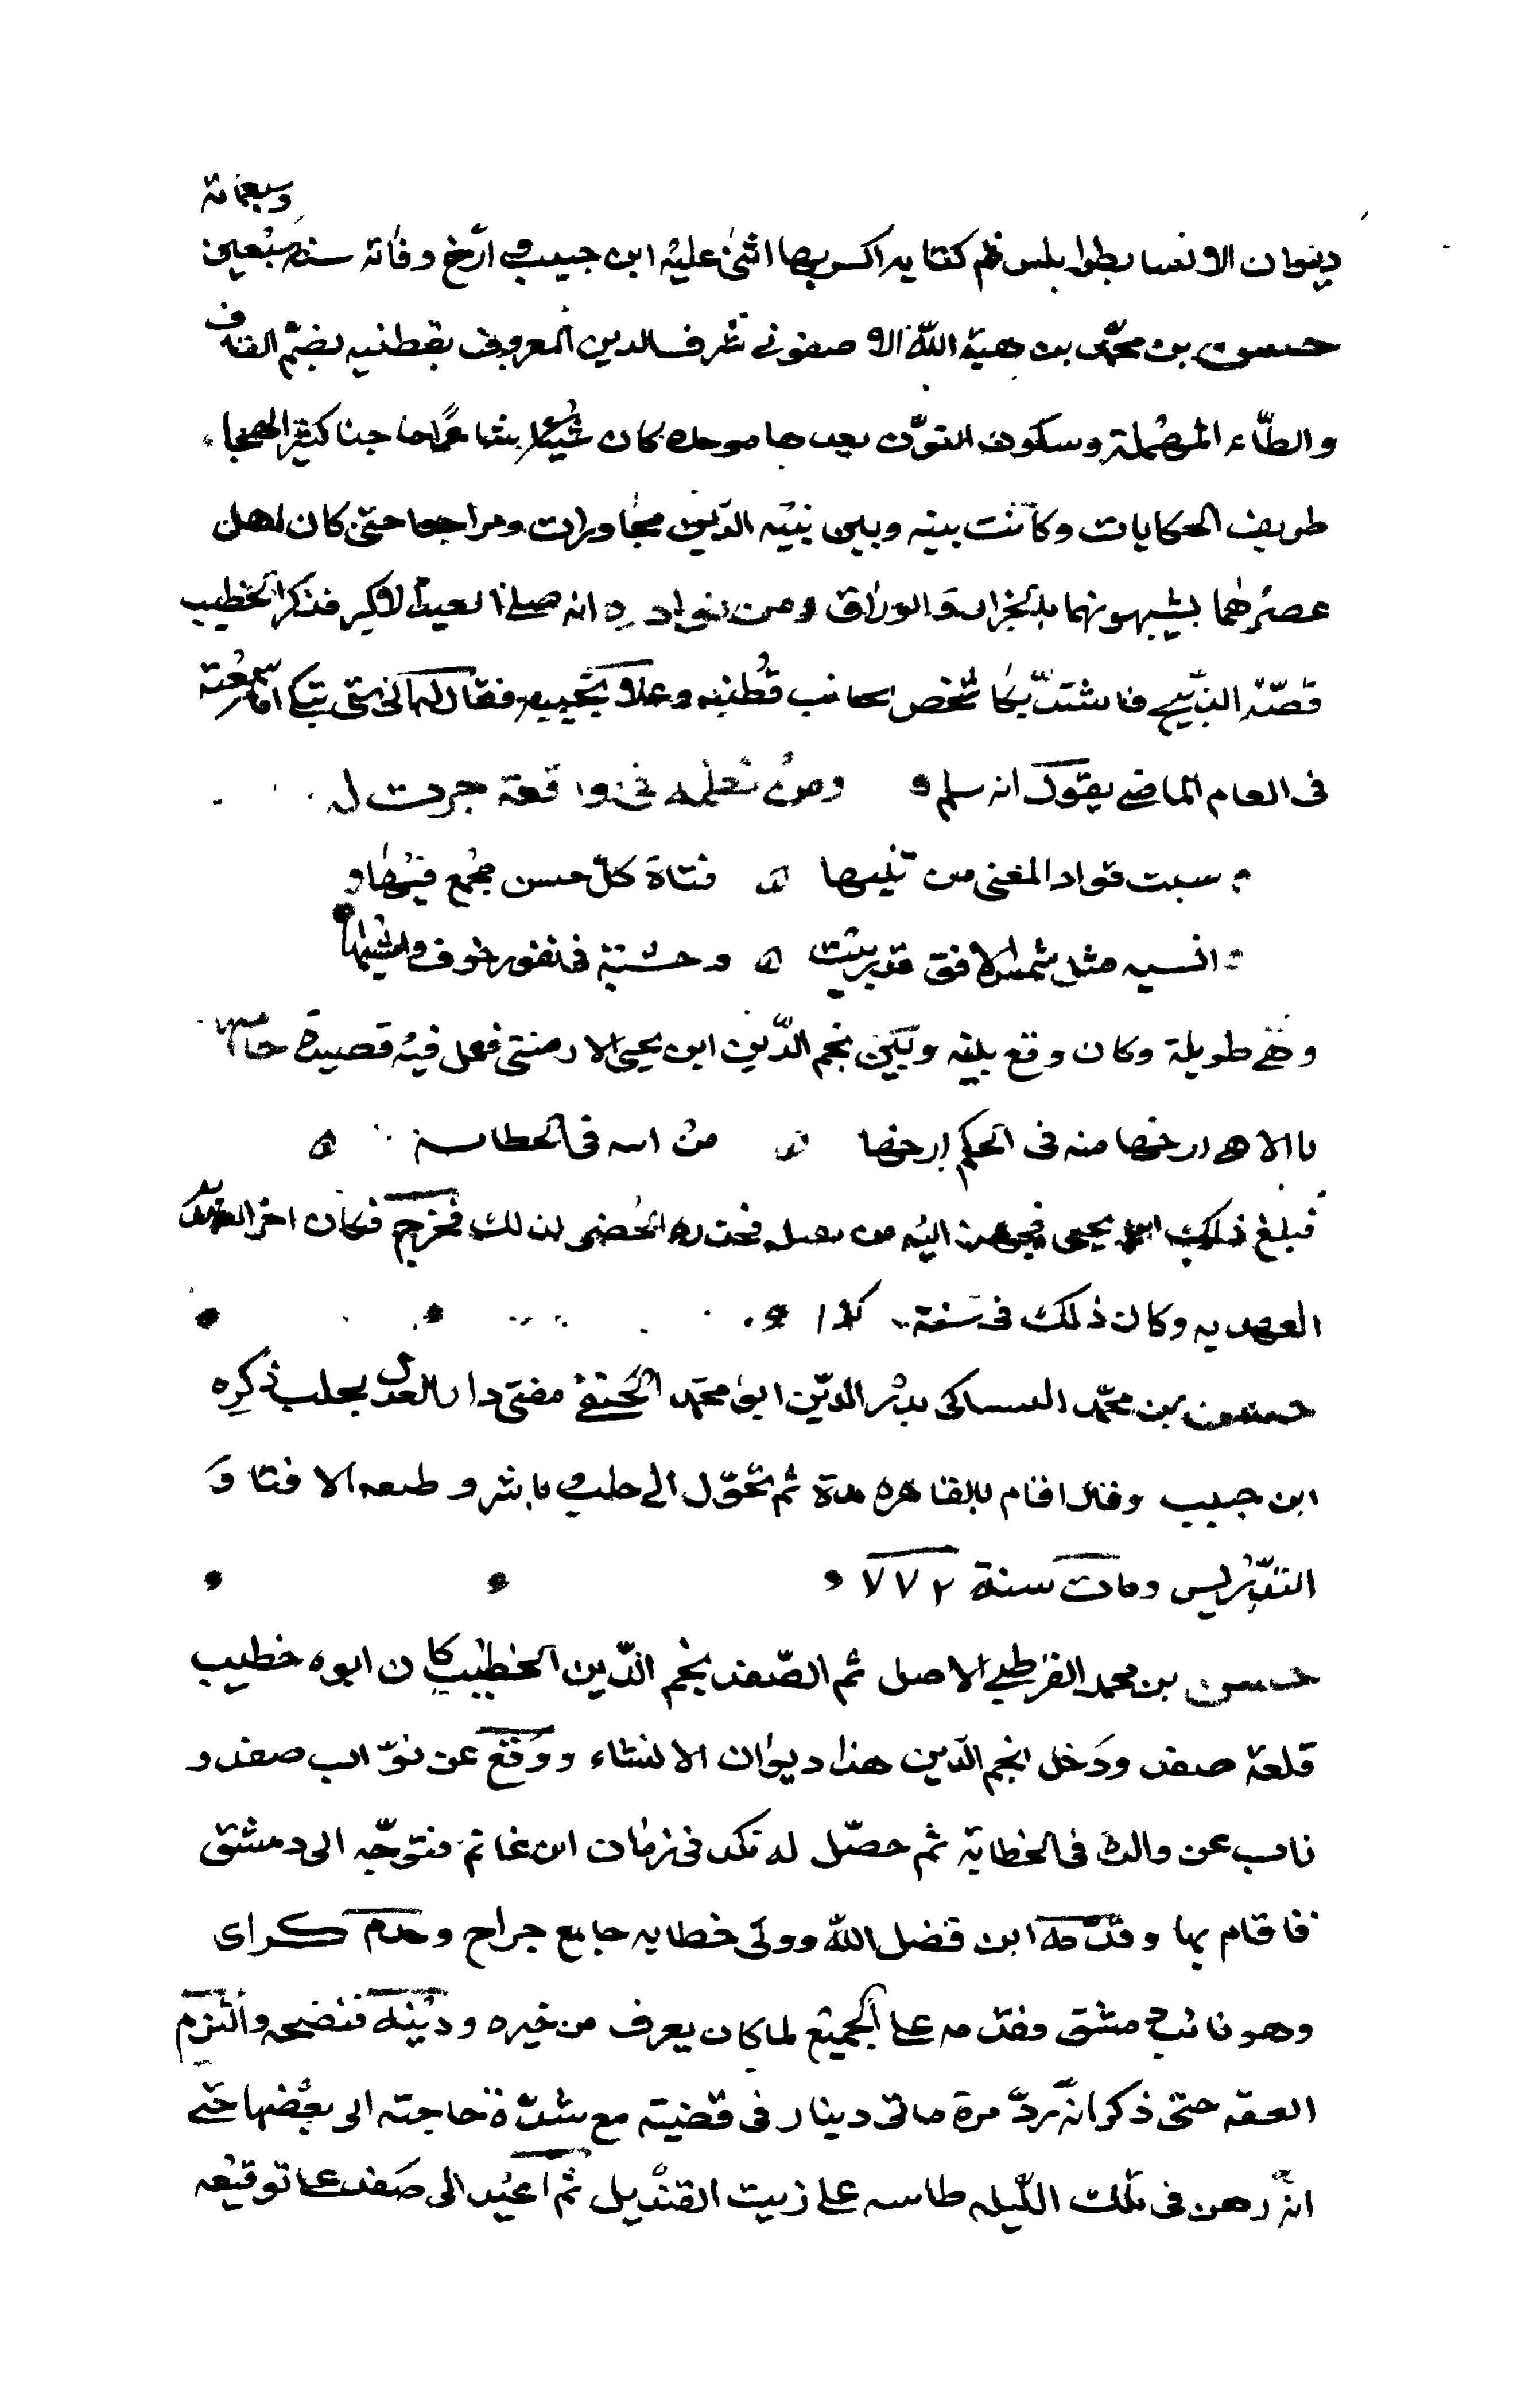 وسبعمائة
ديوان الانسا بطرابلس ثم كتابه السر بها اثنى عليه ابن حبيب و ارّخ وفاته سنة سبعين
حسن بن محمّد بن هبة اللّه الاصفوني شرف الدين المعروف بقطنبه بضمّ القاف
والطّاء المهملة وسكون النوّن بعدها موحده كان شيخا شاعرًا ماجنا كثير الهجاء
ظريف الحكايات وكانت بينه وبين نبيه الدّين محاورات ومراجعا حتى كان اهل
عصرهما يشبهونهما بالجزار والوراق ومن نوادره انه صلى العيد الاكبر فذكر الخطيب
قصّة الذبيح فاشتدّ بكا شخص لجانب قُطنبه وعلا نحيبه فقال له الى متى تبكى اما سمعته
فى العام الماضى يقول انه سلم ومن نظمه فى واقعة جرت له
سبت فواد المغنى من تثنيها فتاة كلّ حسن مجمع فيها
انسيه مثل شمس الافق قد بزغت وحشية فى نفور خوف واشيها
وهي طويلة وكان وقع بينه وبين نجم الدّين ابن يحيى الارمنتى فعمل فيه قصيدة
فى الحكم
فبلغ ذلك ابن يحيى اليه من فكان اخر العهد
العهد به وكان ذلك فى سنة كذا
حسن بن محمّد بدر الدّين ابو محمّد الحنفى مفتى دار العدل بحلب ذكره
ابن حبيب وقال اقام بالقاهره مدة ثم تحوّل الى حلب و باشر و الافتا وَ
التدّريس ومات سنة ٧٧٢
حسن بن محمد القرطبي الاصل ثم الصّفدى نجم الدّين الخطيب كان ابوه خطيب
قلعة صفد ودخل نجم الدّين هذا ديوان الانشاء ووقّع عن نوّاب صفد و
ناب عن والده فى الخطابة ثم حصّل له نكد فى زمان ابن غانم فتوجّه الى دمشق
فاقام بها وقدّمه ابن فضل اللّه وولى خطابه جامع جراح وخدم كراى
وهو نائب دمشق فقدمه على الجميع لما كان يعرف من خيره ودينه فنصحه والتزم
العفة حتى ذكر انه ردّ مرة مائتى دينار فى قضية مع شدّة حاجته الى بعضها حتى
انّه رهن فى تلك اللّيله طاسه على زيت القنديل ثم اعيد الى صفد على توقيعه